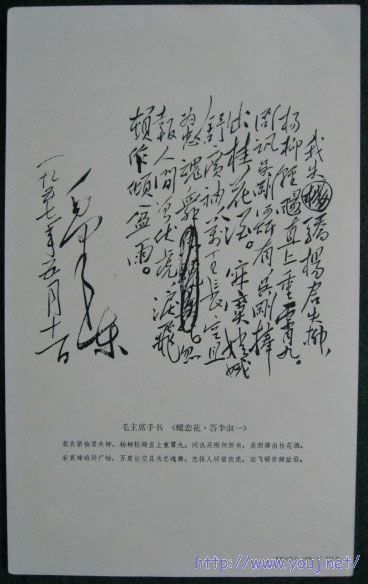 我失驕楊君失柳，
楊柳輕颺直上重霄九。
問訊吳剛何所有，吳剛捧
出桂花酒。寂寞嫦娥
舒廣袖，萬里長空且
為忠魂舞。忽
報人間曾伏虎，淚飛
頓作傾盆雨。
毛澤東
一九五七年五月十一日
毛主席手书 《蝶恋花·答李淑一》
我失骄杨君失柳，杨柳轻飏直上重霄九。问讯吴刚何所有，吴刚捧出桂花酒。
寂寞嫦娥舒广袖，万里长空且为忠魂舞。忽报人间曾伏虎，泪飞顿作倾盆雨。
http://www.youj.net/